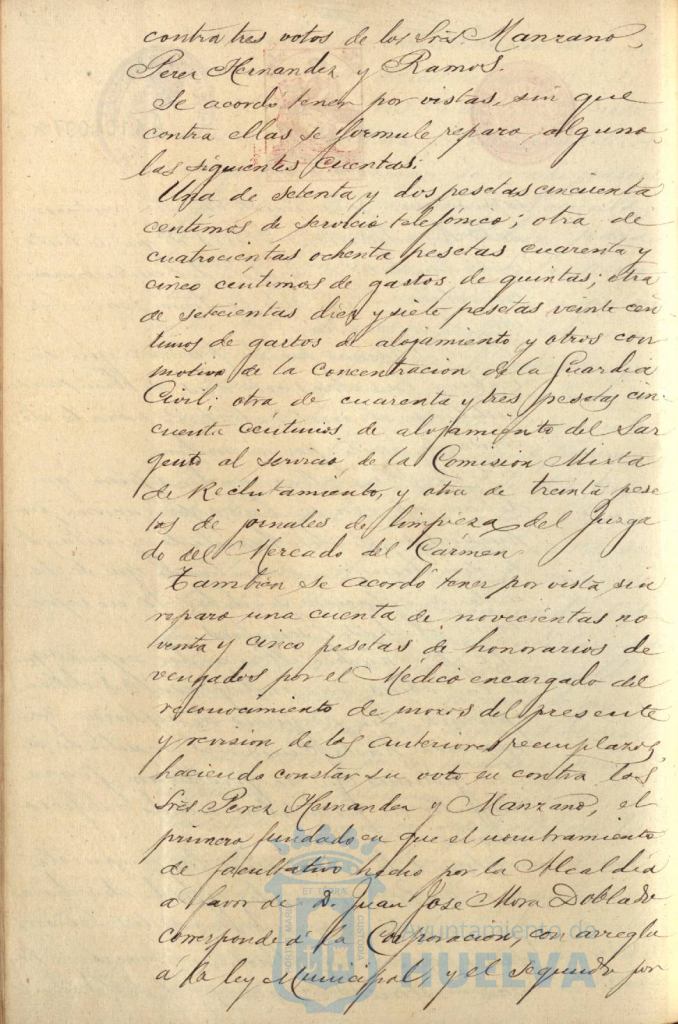 contra tres votos de los Sres. Manzano,
Perez Hernandez y Ramos.
Se acordó tener por vistas, sin que
contra ellas se formule reparo alguno,
las siguientes cuentas:
Una de setenta y dos pesetas cincuenta
centimos de servicio telefónico; otra de
cuatrocientas ochenta pesetas cuarenta y
cinco céntimos de gastos de quintas; otra
de setecientas diez y siete pesetas veinte cen
timos de gastos de alojamiento y otros con
motivo de la concentracion de la Guardia
Civil; otra de cuarenta y tres pesetas cin-
cuenta céntimos de alojamiento del Sar
gento al servicio de la Comision Mixta
de Reclutamiento, y otra de treinta pese
tas de jornales de limpieza del Juzga
do del Mercado del Cármen
Tambien se acordó tener por vista sin
reparo una cuenta de novecientas no
venta y cinco pesetas de honorarios de
vengados por el Médico encargado del
reconocimiento de mozos del presente
y revision de los anteriores reemplazos,
haciendo constar su voto en contra los
Sres. Perez Hernandez y Manzano, el
primero fundado en que el nombramiento
de facultativo hecho por la Alcaldia
a favor de D. Juan José Mora Doblado
corresponde á la Corporacion, con arreglo
á la ley Municipal, y el segundo por
Ayuntamiento de
HUELVA